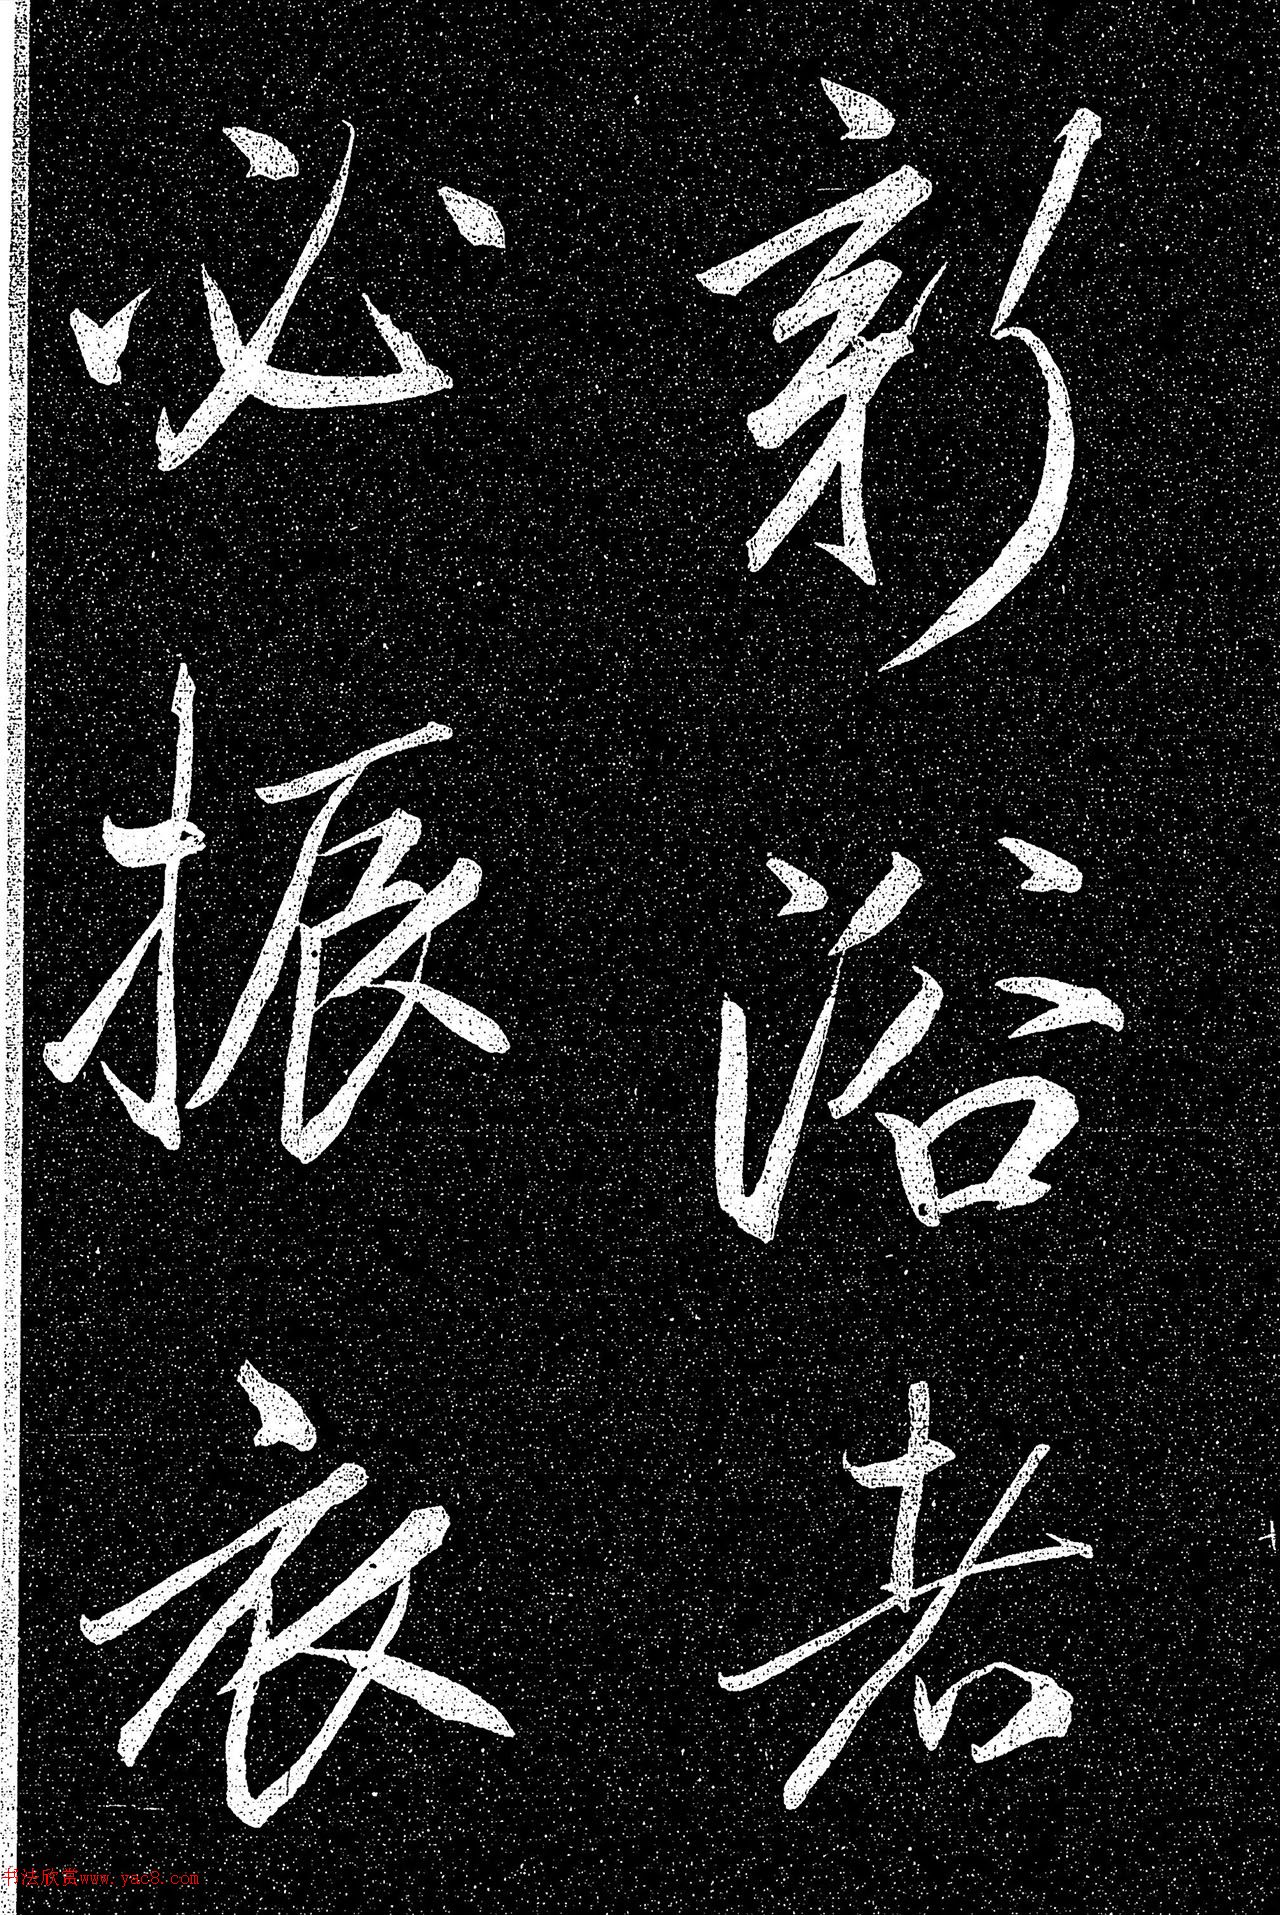 新浴者
必振衣
书法欣赏www.yac8.com